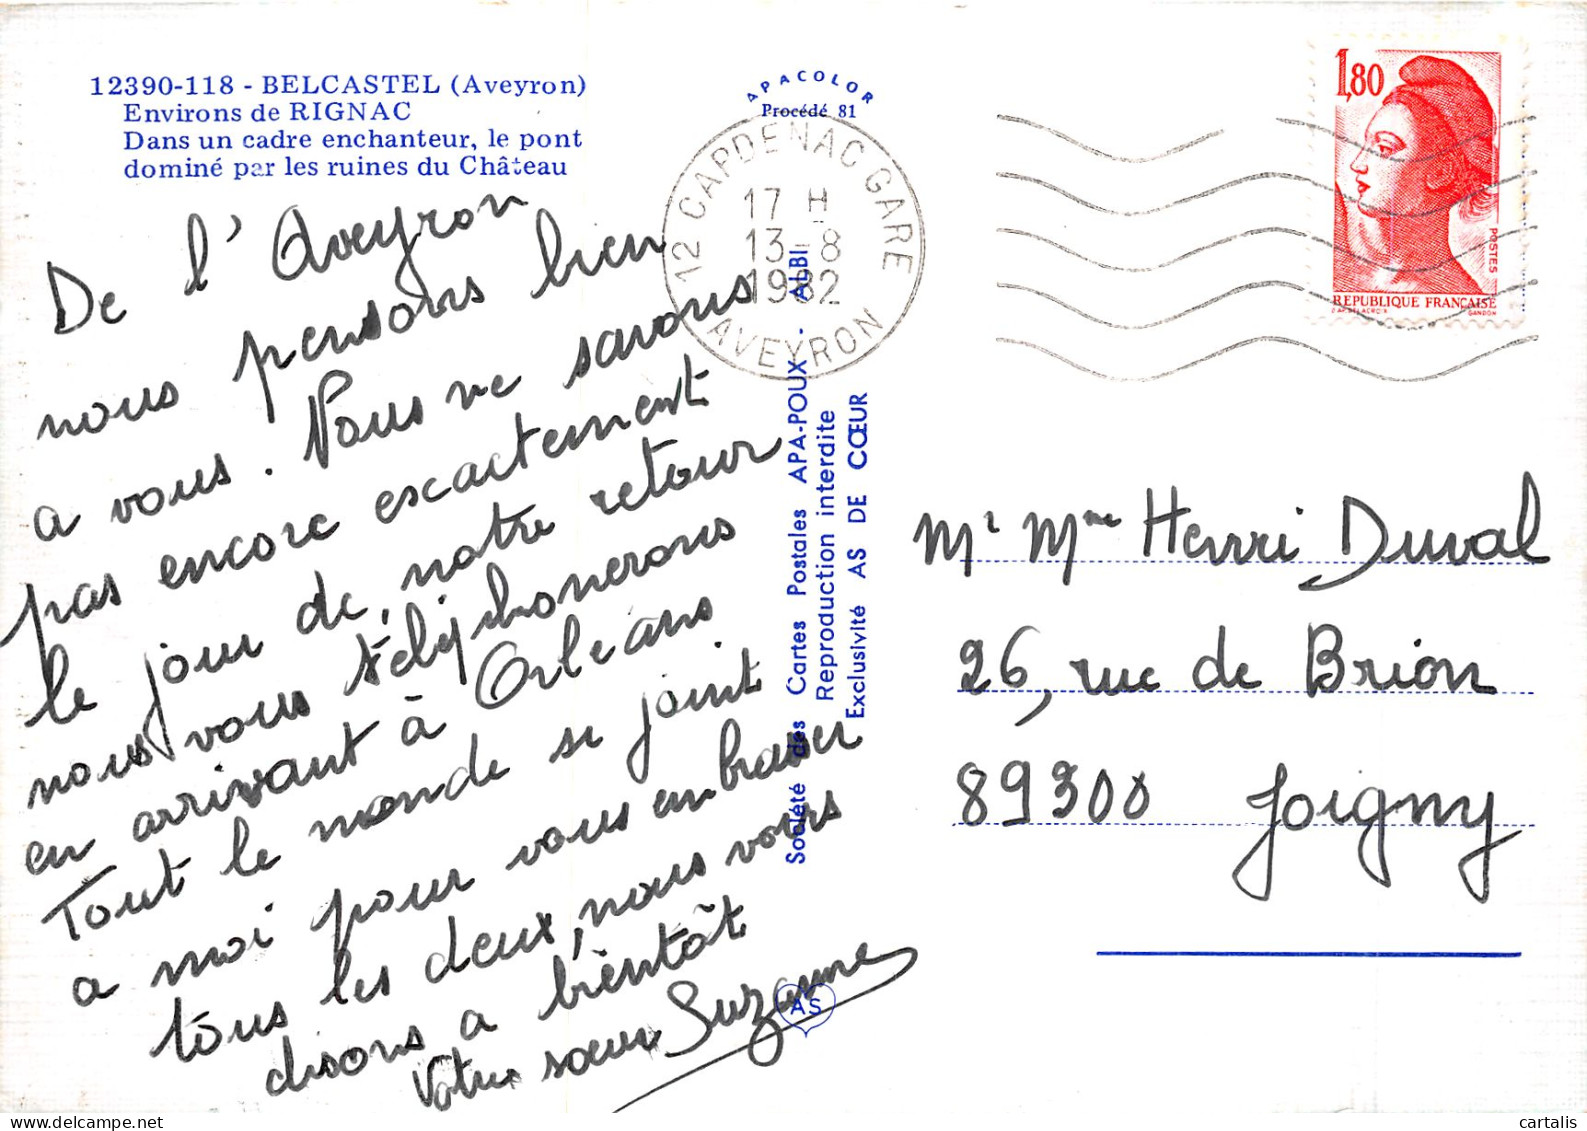 12390-118 - BELCASTEL (Aveyron)
Environs de RIGNAC
Dans un cadre enchanteur, le pont
dominé par les ruines du Château
APACOLOR
Procédé 81
12 CAPDENAC GARE
17 H
13-8
1982
AVEYRON
1,80
POSTES
REPUBLIQUE FRANÇAISE
D'AP. DELACROIX
GANDON
De l'Aveyron
nous pensons bien
a vous. Nous ne savons
pas encore escactement
le jour de, notre retour
nous vous téléphonerons
en arrivant à Orléans
Tout le monde se joint
a moi pour vous enbrasser
tous les deux, nous vous
disons a bientôt
Votre soeur Suzanne
Société des Cartes Postales APA-POUX - ALBI
Reproduction interdite
Exclusivité AS DE CŒUR
AS
Mr Mme Henri Duval
26, rue de Brion
89300 Joigny
cartalis